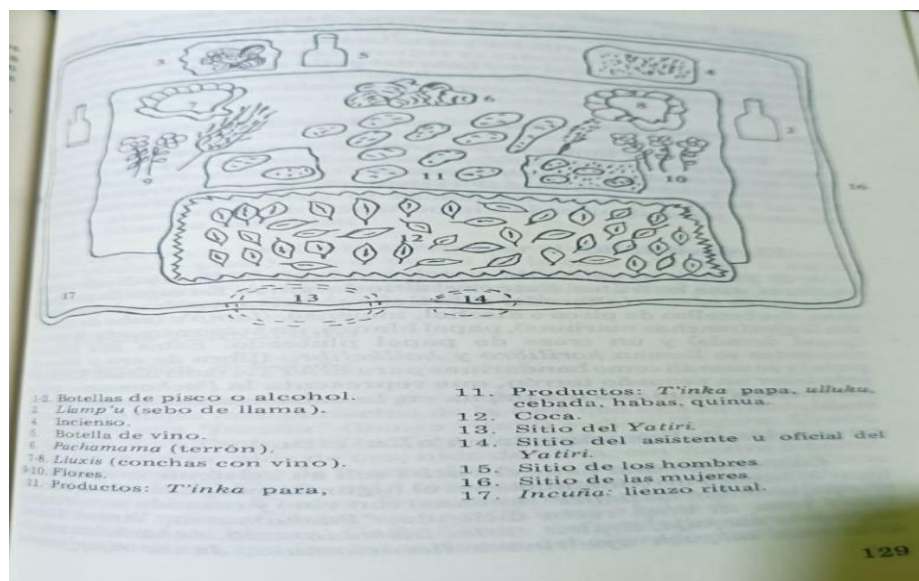 3
5
4
7
6
8
2
9
11
10
12
16
17
13
14
1-2. Botellas de pisco o alcohol.
3. Llamp'u (sebo de llama).
4. Incienso.
5. Botella de vino.
6. Pachamama (terrón).
7-8. Lluxis (conchas con vino).
9-10. Flores.
11. Productos: T'inka para,
11. Productos: T'inka papa, ulluku,
cebada, habas, quinua.
12. Coca.
13. Sitio del Yatiri.
14. Sitio del asistente u oficial del
Yatiri.
15. Sitio de los hombres
16. Sitio de las mujeres
17. Incuña: lienzo ritual.
129